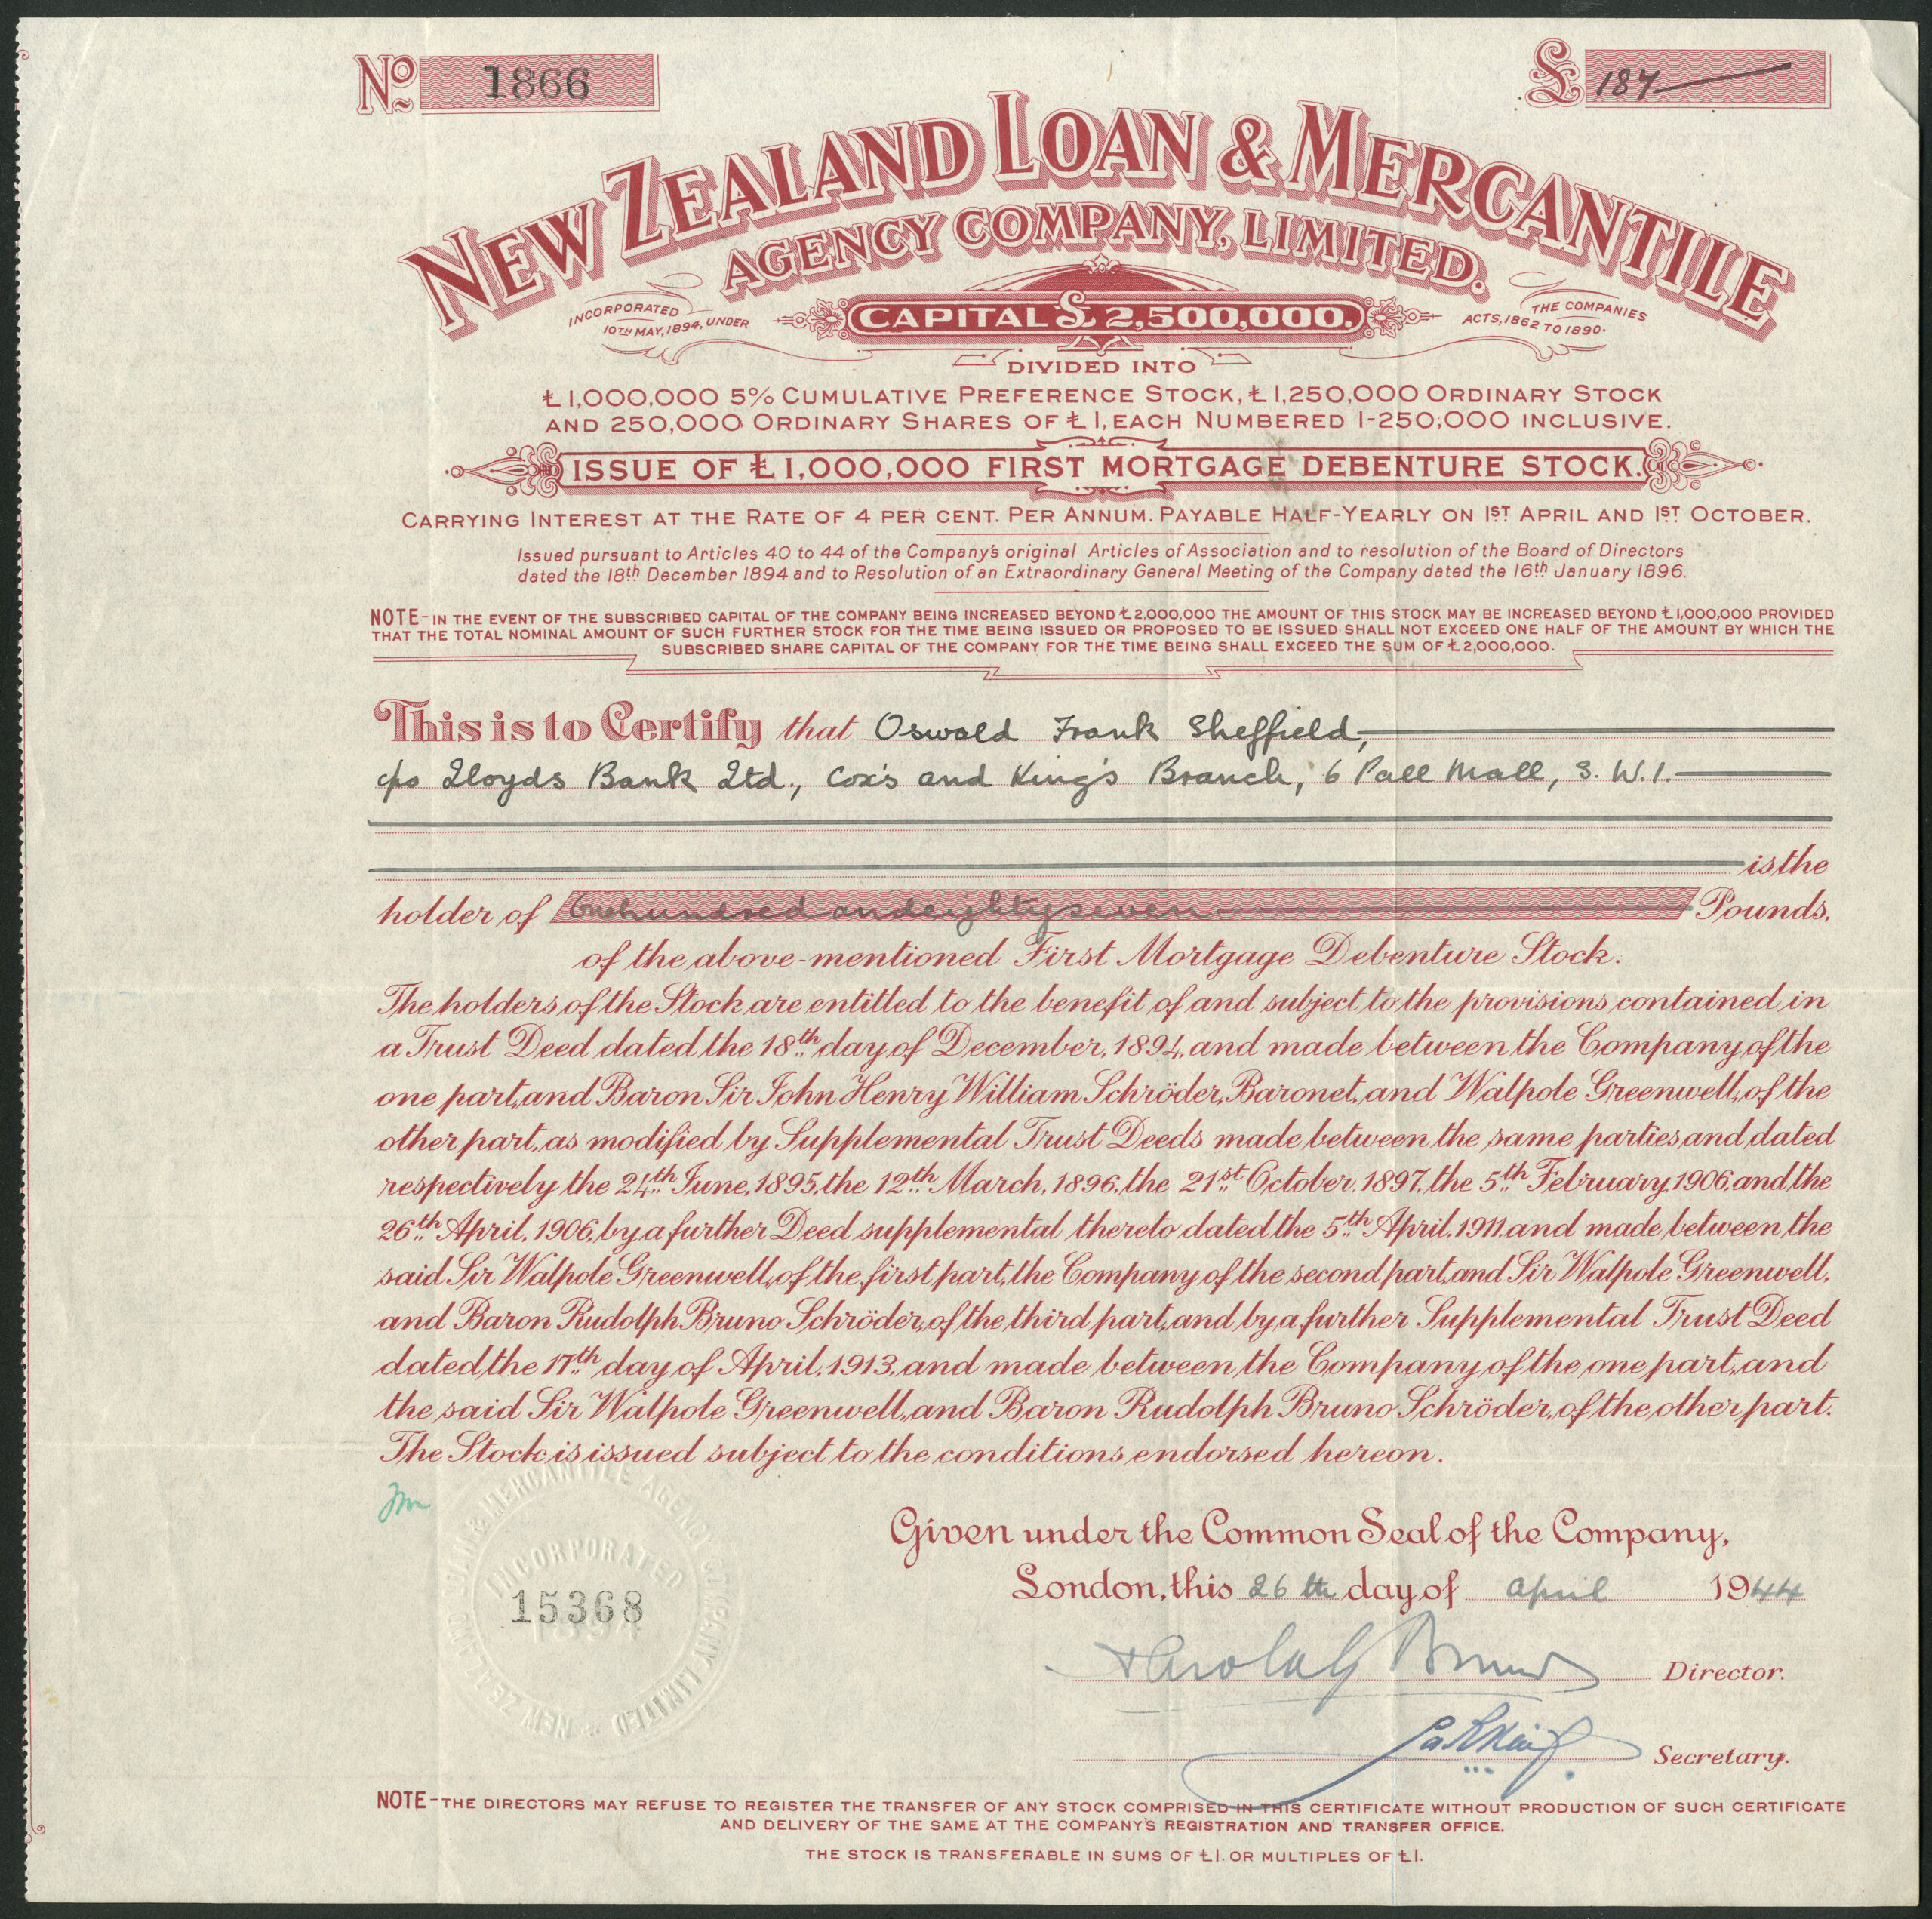 No 1866
£ 187
NEW ZEALAND LOAN & MERCANTILE
AGENCY COMPANY, LIMITED.
INCORPORATED
10TH MAY, 1894, UNDER
CAPITAL £2,500,000.
THE COMPANIES
ACTS, 1862 TO 1890.
DIVIDED INTO
£1,000,000 5% CUMULATIVE PREFERENCE STOCK, £1,250,000 ORDINARY STOCK
AND 250,000 ORDINARY SHARES OF £1, EACH NUMBERED 1-250,000 INCLUSIVE.
ISSUE OF £1,000,000 FIRST MORTGAGE DEBENTURE STOCK.
CARRYING INTEREST AT THE RATE OF 4 PER CENT. PER ANNUM. PAYABLE HALF-YEARLY ON 1ST APRIL AND 1ST OCTOBER.
Issued pursuant to Articles 40 to 44 of the Company's original Articles of Association and to resolution of the Board of Directors
dated the 18th December 1894 and to Resolution of an Extraordinary General Meeting of the Company dated the 16th January 1896.
NOTE-IN THE EVENT OF THE SUBSCRIBED CAPITAL OF THE COMPANY BEING INCREASED BEYOND £2,000,000 THE AMOUNT OF THIS STOCK MAY BE INCREASED BEYOND £1,000,000 PROVIDED
THAT THE TOTAL NOMINAL AMOUNT OF SUCH FURTHER STOCK FOR THE TIME BEING ISSUED OR PROPOSED TO BE ISSUED SHALL NOT EXCEED ONE HALF OF THE AMOUNT BY WHICH THE
SUBSCRIBED SHARE CAPITAL OF THE COMPANY FOR THE TIME BEING SHALL EXCEED THE SUM OF £2,000,000.
This is to Certify that Oswald Frank Sheffield,
c/o Lloyds Bank Ltd., Cox's and King's Branch, 6 Pall Mall, S.W.1.
is the
holder of One hundred and eighty seven Pounds,
of the above-mentioned First Mortgage Debenture Stock.
The holders of the Stock are entitled to the benefit of and subject to the provisions contained in
a Trust Deed dated the 18th day of December, 1894, and made between the Company of the
one part, and Baron Sir John Henry William Schröder, Baronet, and Walpole Greenwell, of the
other part, as modified by Supplemental Trust Deeds made between the same parties, and dated
respectively the 24th June, 1895, the 12th March, 1896, the 21st October, 1897, the 5th February, 1906, and the
26th April, 1906, by a further Deed supplemental thereto dated the 5th April, 1911, and made between the
said Sir Walpole Greenwell, of the first part, the Company of the second part, and Sir Walpole Greenwell,
and Baron Rudolph Bruno Schröder, of the third part, and by a further Supplemental Trust Deed
dated the 17th day of April, 1913, and made between the Company of the one part, and
the said Sir Walpole Greenwell, and Baron Rudolph Bruno Schröder, of the other part.
The Stock is issued subject to the conditions endorsed hereon.
NEW ZEALAND LOAN & MERCANTILE AGENCY COMPANY LIMITED
INCORPORATED
1894
15368
Given under the Common Seal of the Company,
London, this 26th day of april 1944
Director.
Secretary.
NOTE-THE DIRECTORS MAY REFUSE TO REGISTER THE TRANSFER OF ANY STOCK COMPRISED IN THIS CERTIFICATE WITHOUT PRODUCTION OF SUCH CERTIFICATE
AND DELIVERY OF THE SAME AT THE COMPANY'S REGISTRATION AND TRANSFER OFFICE.
THE STOCK IS TRANSFERABLE IN SUMS OF £1. OR MULTIPLES OF £1.